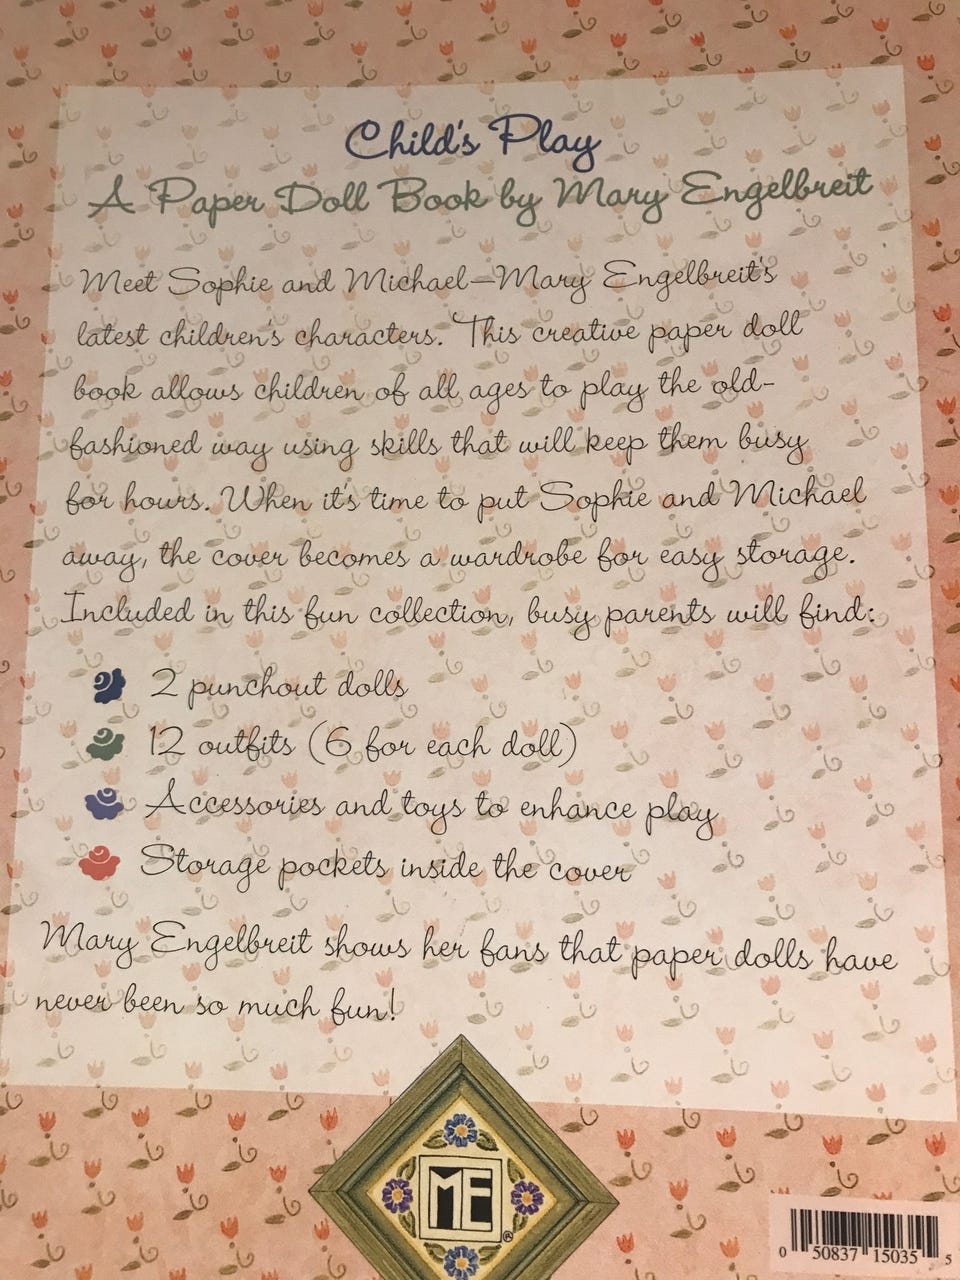 Child's Play
A Paper Doll Book by Mary Engelbreit
Meet Sophie and Michael—Mary Engelbreit's
latest children's characters. This creative paper doll
book allows children of all ages to play the old-
fashioned way using skills that will keep them busy
for hours. When it's time to put Sophie and Michael
away, the cover becomes a wardrobe for easy storage.
Included in this fun collection, busy parents will find:
2 punchout dolls
12 outfits (6 for each doll)
Accessories and toys to enhance play
Storage pockets inside the cover
Mary Engelbreit shows her fans that paper dolls have
never been so much fun!
ME®
0 50837 15035 5